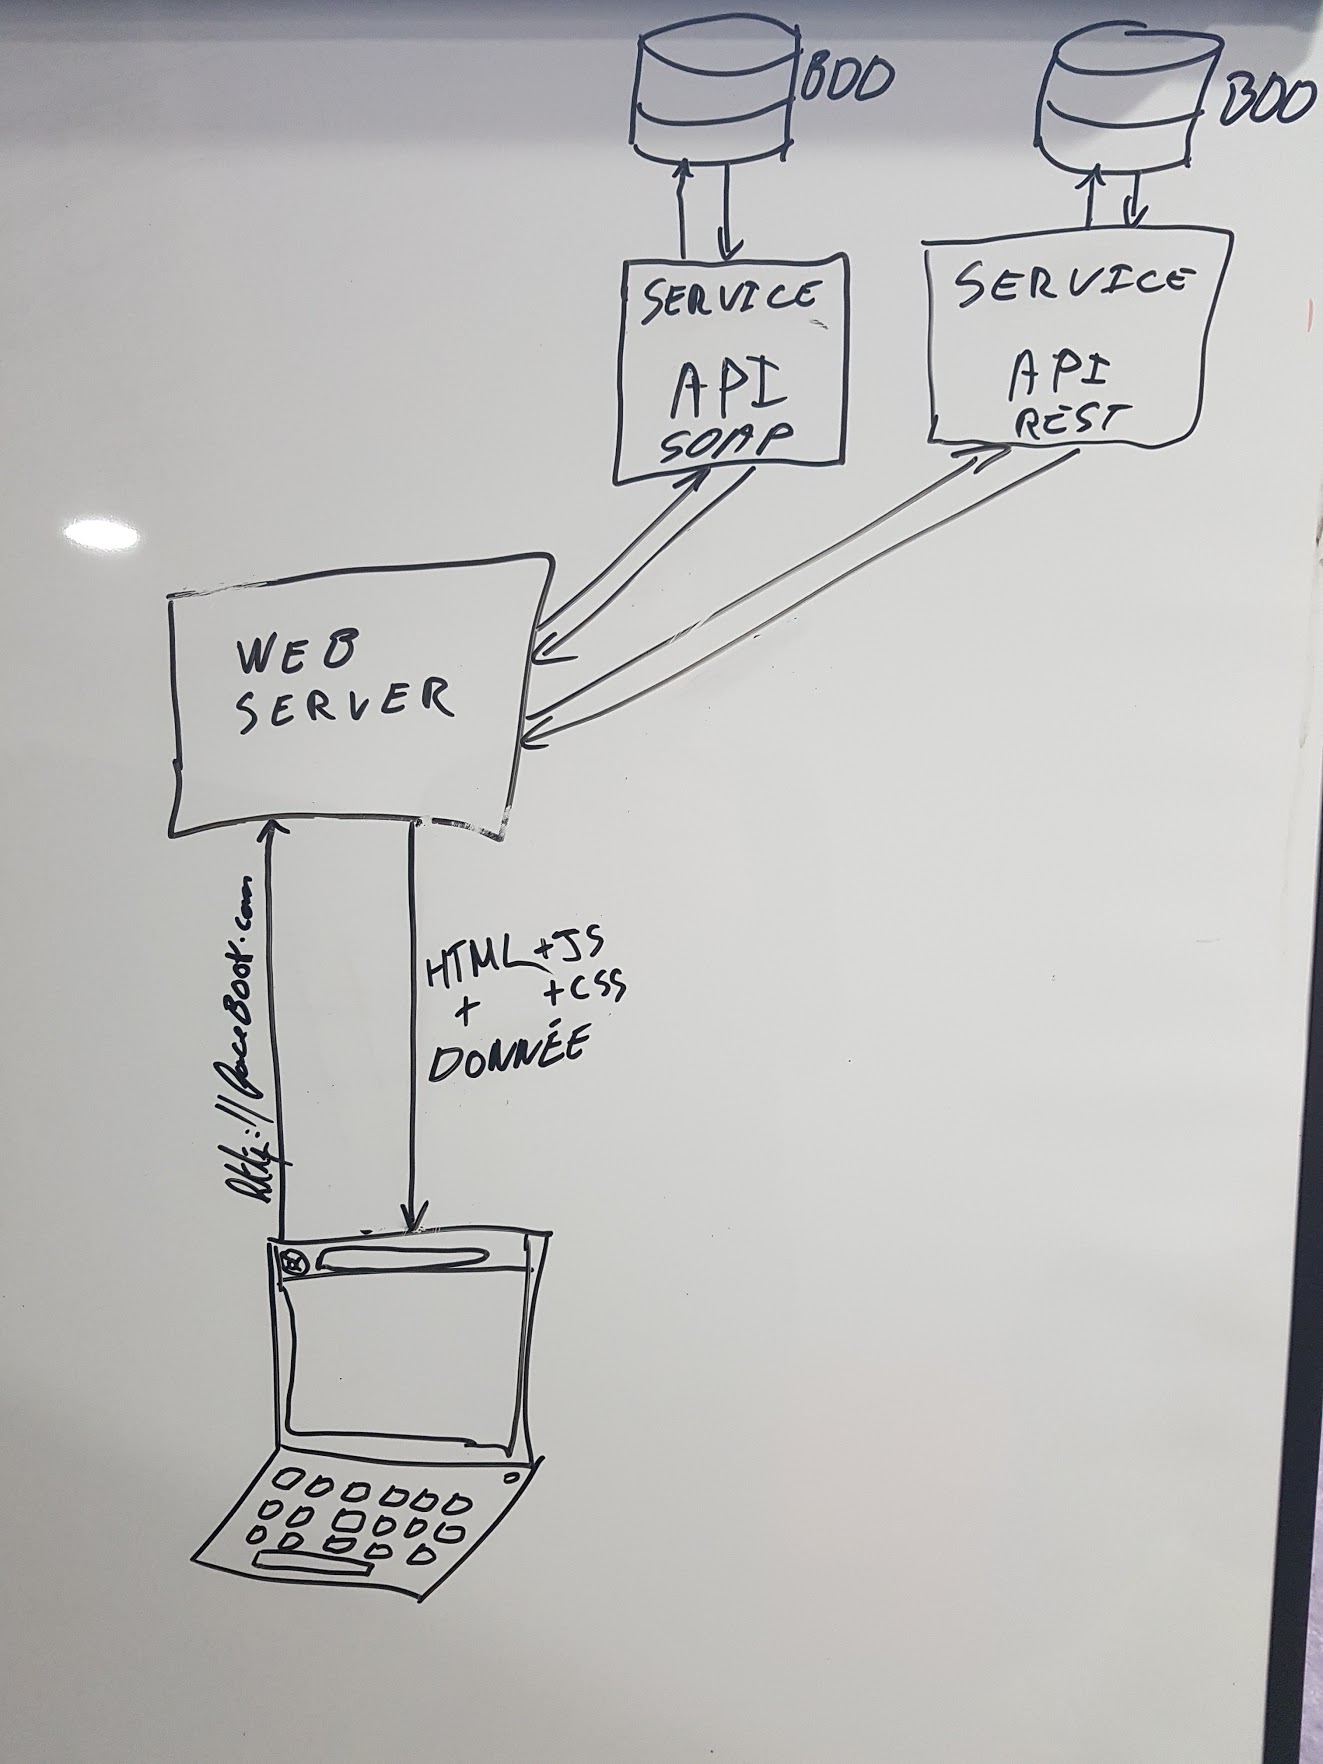 BDD
BDD
SERVICE
API
SOAP
SERVICE
API
REST
WEB
SERVER
http://faceBook.com
HTML +JS
+ +CSS
DONNÉE